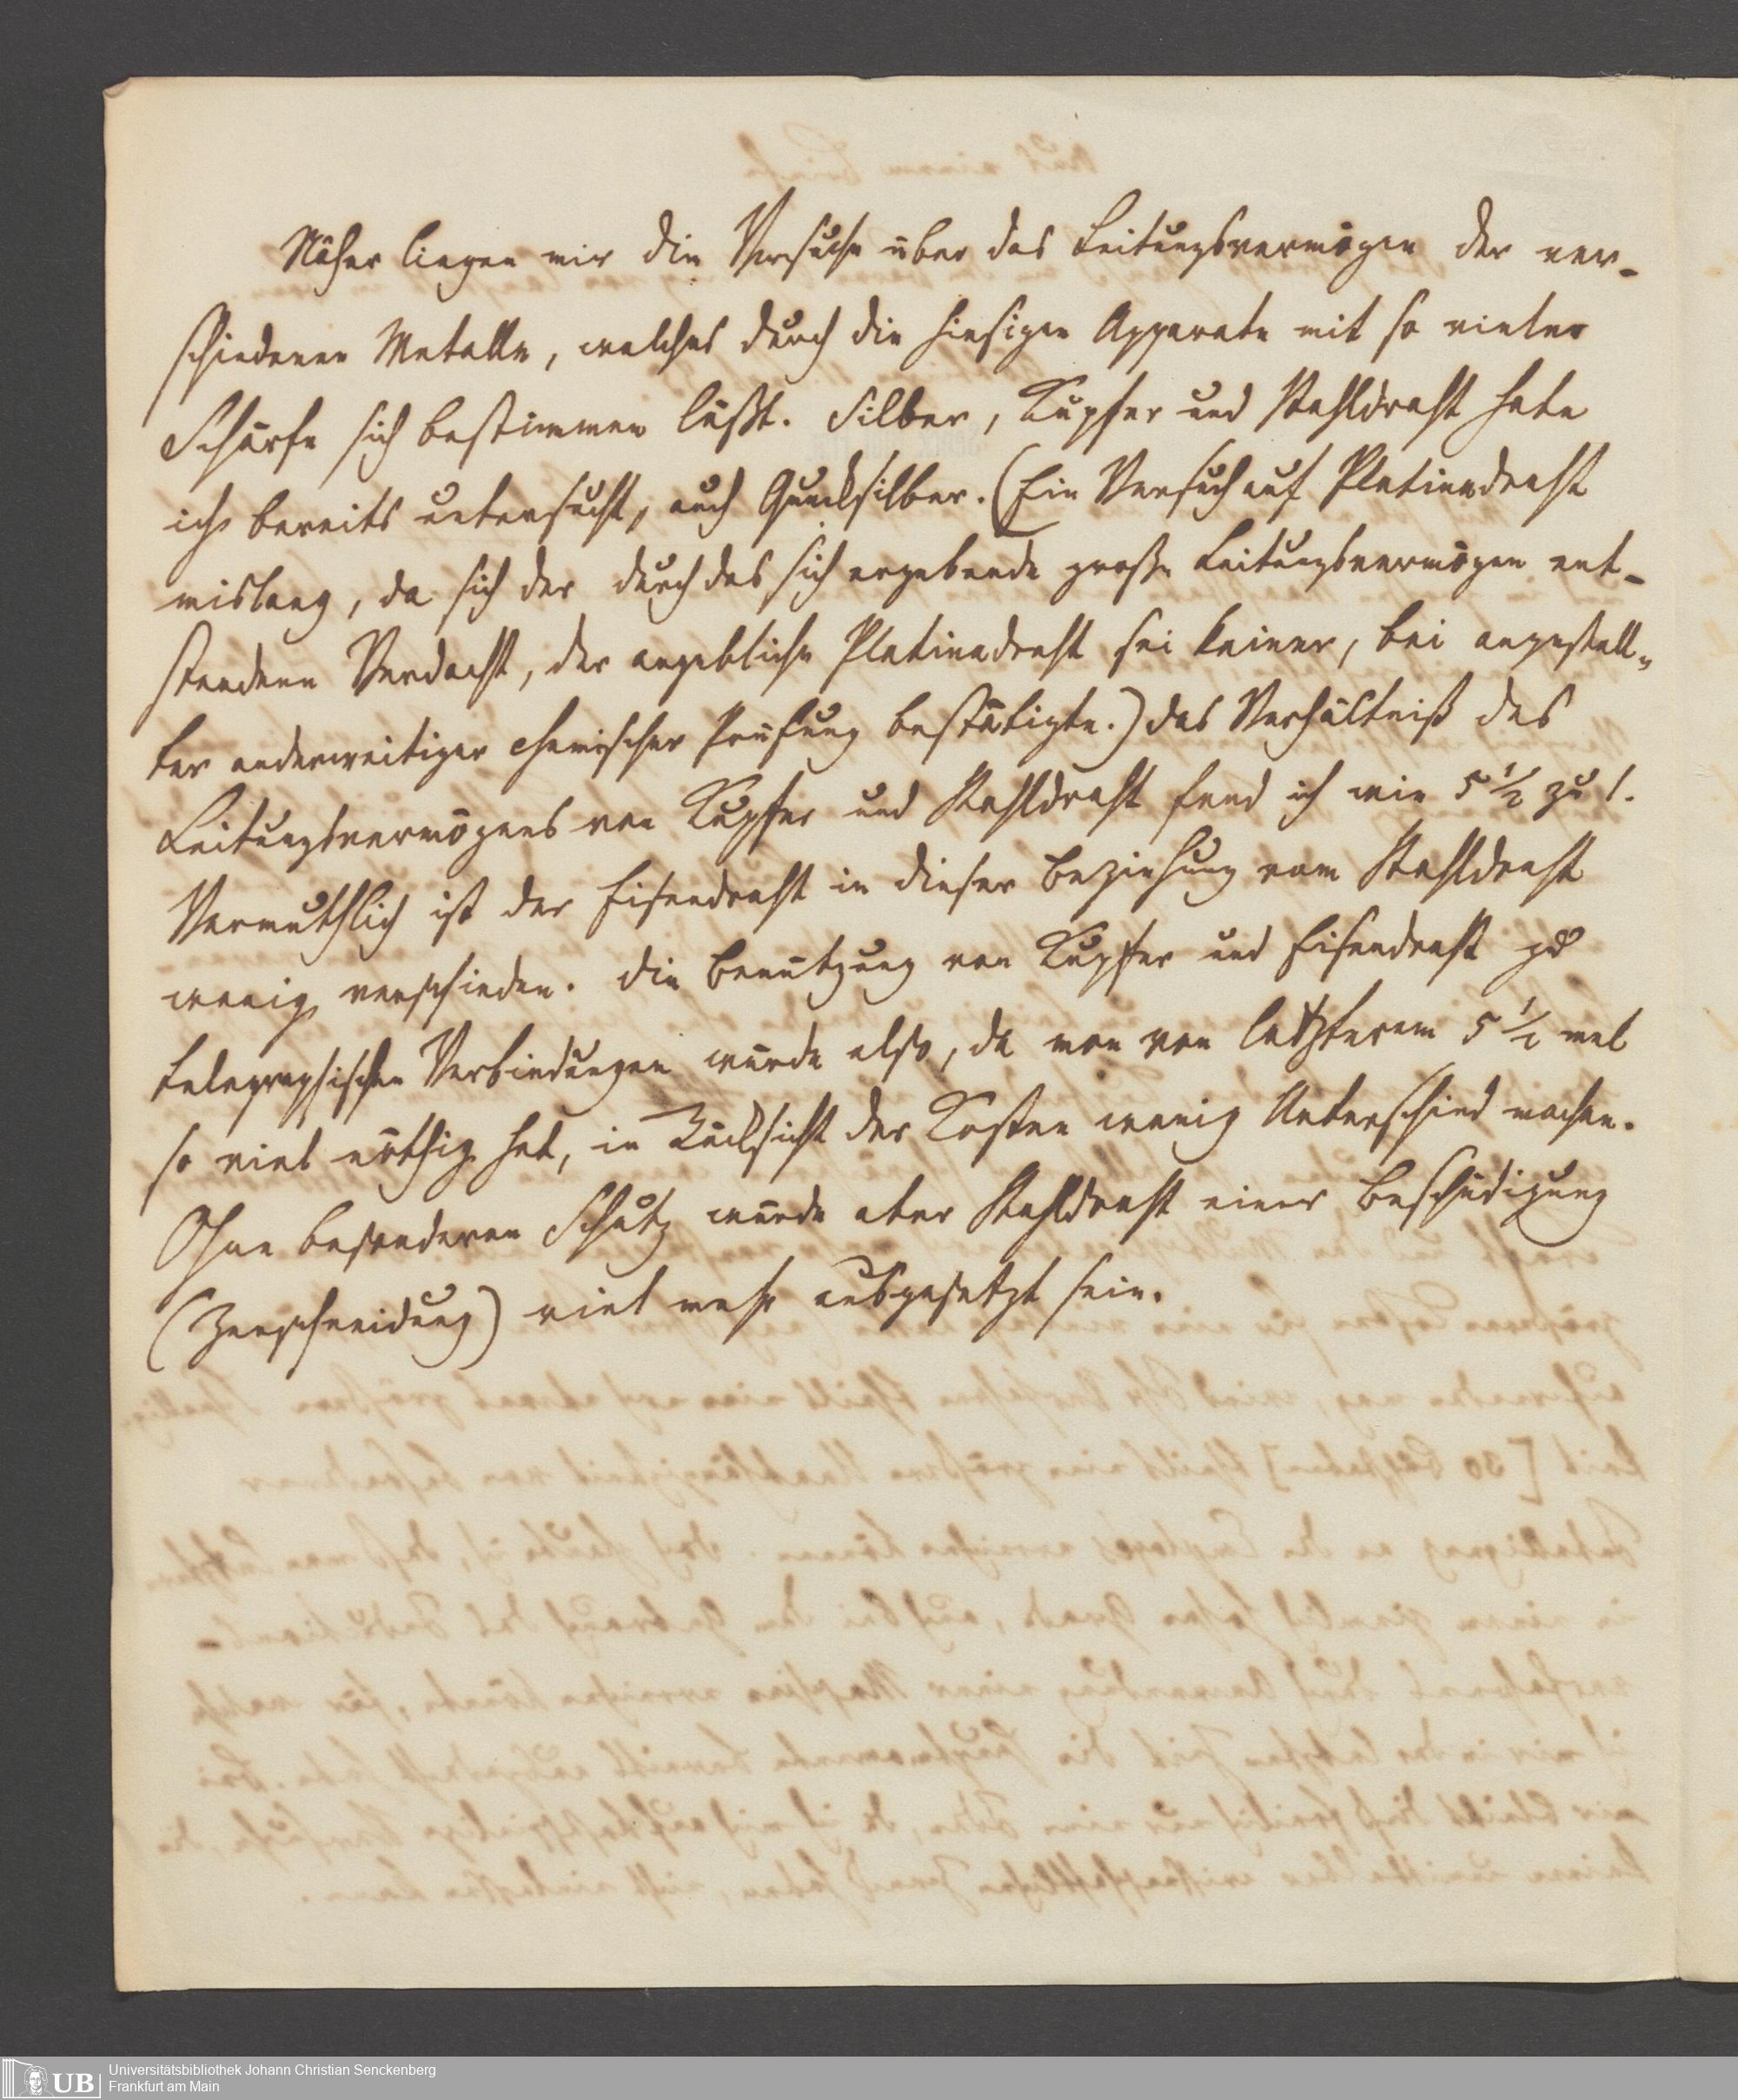 Näher liegen mir die Versuche über das Leitungsvermögen der ver-
schiedenen Metalle, welches durch die hiesigen Apparate mit so vieler
Schärfe sich bestimmen läßt. Silber, Kupfer und Stahldraht habe
ich bereits untersucht, auch Quecksilber. (Ein Versuch auf Platinadraht
mislang, da sich der durch das sich ergebende große Leitungsvermögen ent-
standene Verdacht, der angebliche Platinadraht sei keiner, bei angestell-
ter anderweitiger chemischer Prüfung bestätigte.) Das Verhältniß des
Leitungsvermögens von Kupfer und Stahldraht fand ich wie 5 1/2 zu 1.
Vermuthlich ist der Eisendraht in dieser Beziehung vom Stahldraht
wenig verschieden. Die Benutzung von Kupfer und Eisendraht zu
telegraphischen Verbindungen würde also, da man von letzterem 5 1/2 mal
so viel nöthig hat, in Rücksicht der Kosten wenig Unterschied machen.
Ohne besonderen Schutz würde aber Stahldraht einer Beschädigung
(Zerschneidung) viel mehr ausgesetzt sein.
UB Universitätsbibliothek Johann Christian Senckenberg
Frankfurt am Main